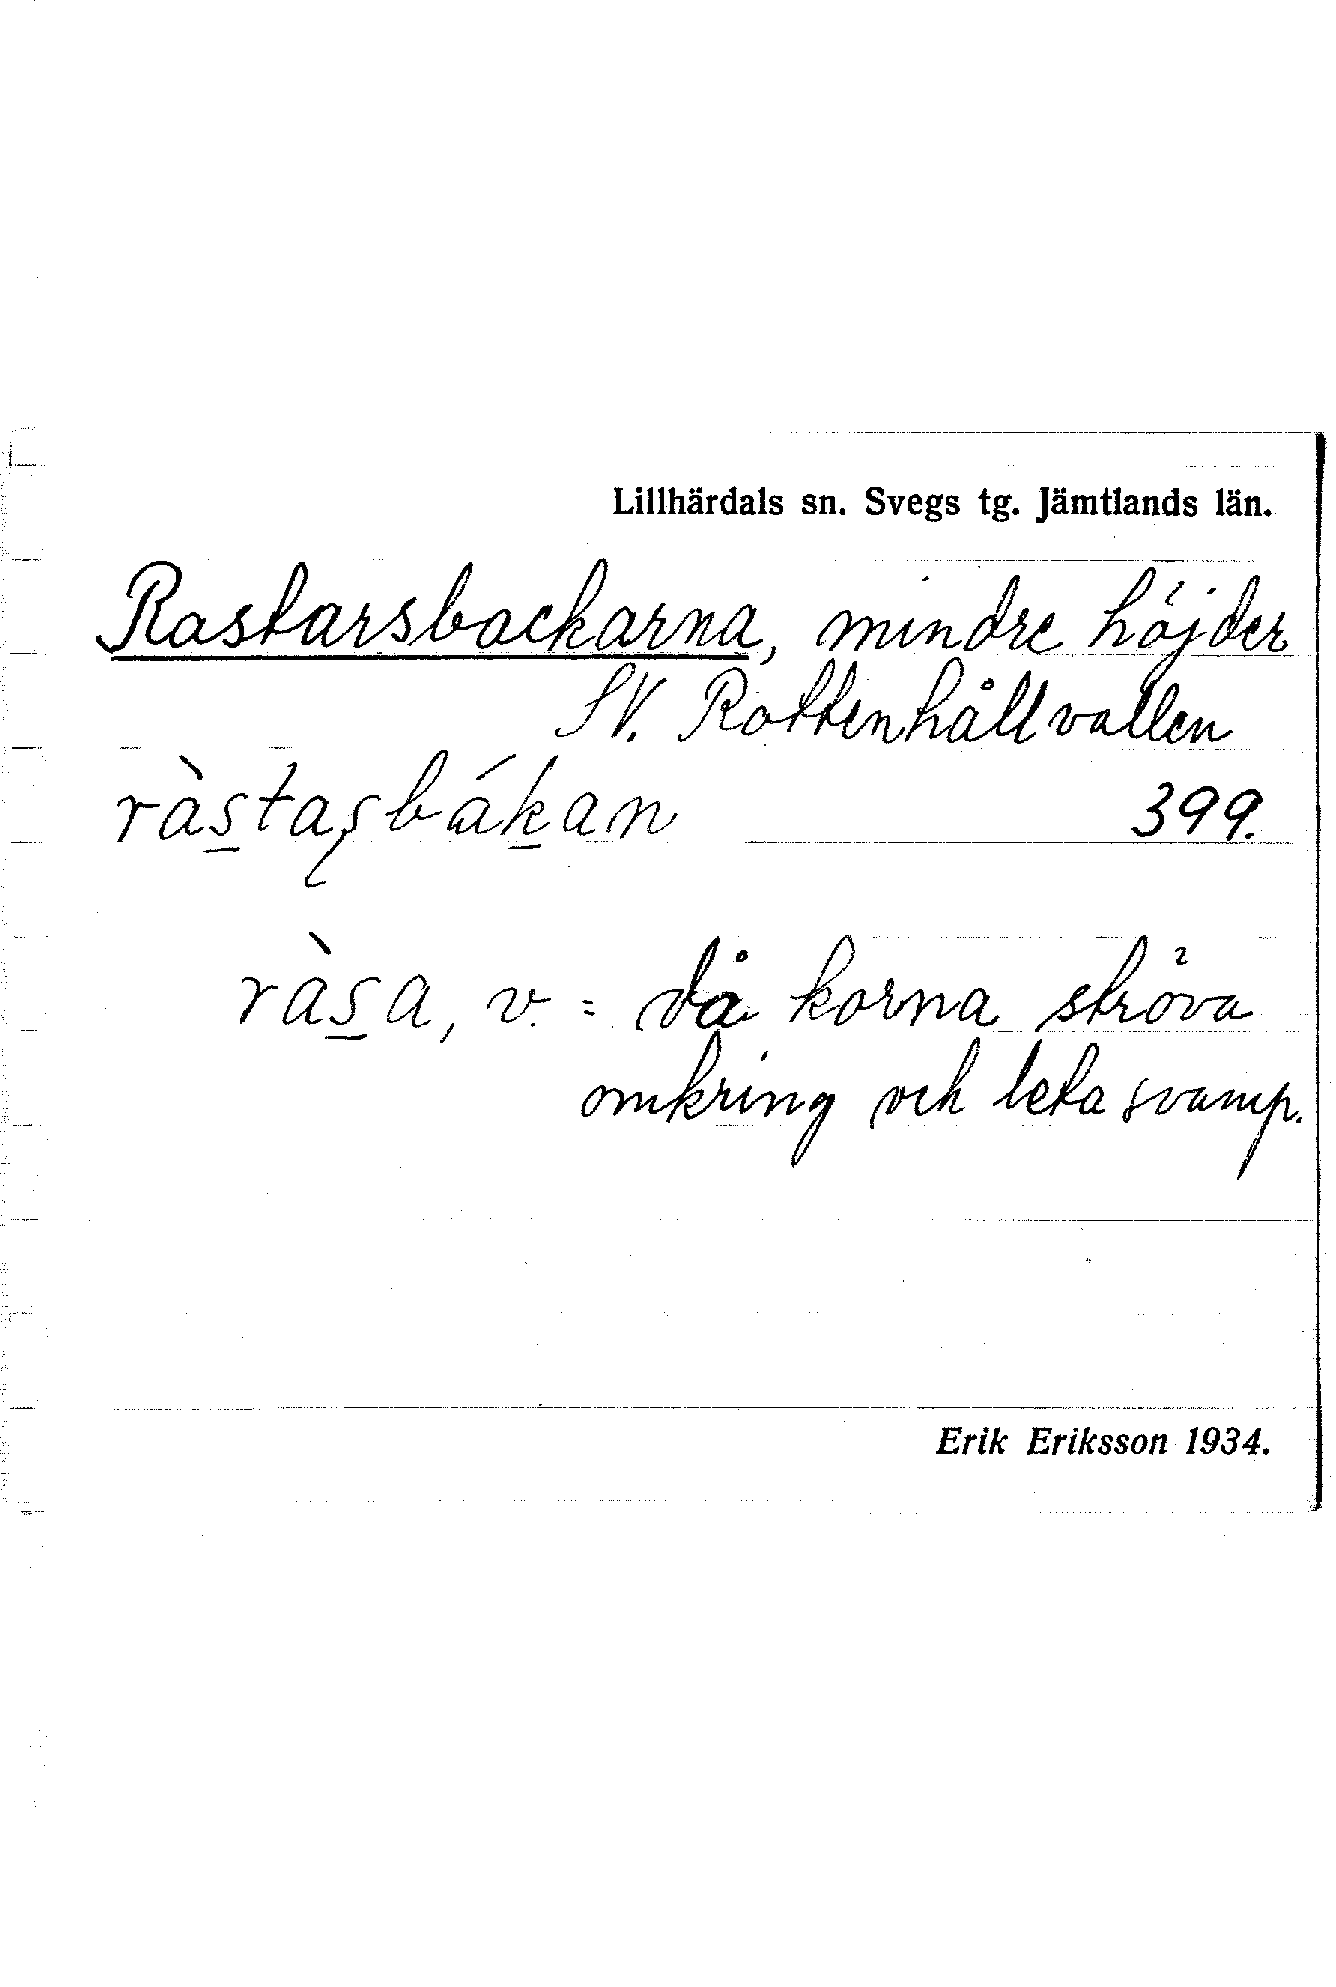 Lillhärdals sn. Svegs tg. Jämtlands län.
Rastarsbackarna, mindre höjder
SV. Rottenhållvallen
ràs̠taʂbák̠an
399.
ràs̠a, v. = då korna ströva
omkring och leta svamp.
Erik Eriksson 1934.